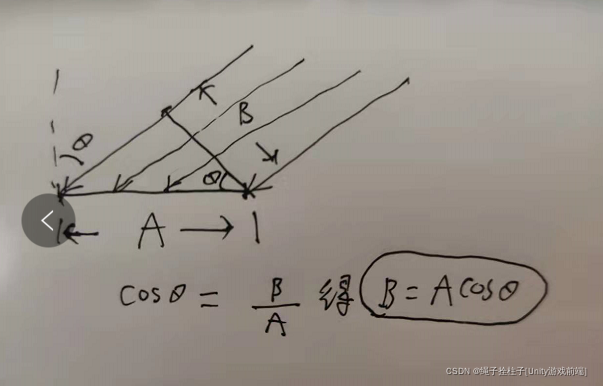 θ
B
θ
A
cosθ = B/A 得 B = Acosθ
CSDN @绳子拴柱子[Unity游戏前端]